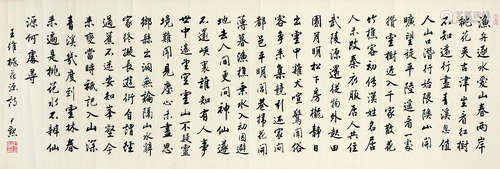 漁舟逐水愛山春兩岸
桃花夾古津坐看紅樹
不知遠行盡青溪忽值
人山口潛行始隈隩山開
曠望旋平陸遙看一處
攢雲樹近入千家散花
竹樵客初傳漢姓名居
人未改秦衣服居人共住
武陵源還從物外起田
園月明松下房櫳靜日
出雲中雞犬喧驚聞俗
客爭來集競引還家問
都邑平明閭巷掃花開
薄暮漁樵乘水入初因避
地去人間更問神仙遂
不還峽裏誰知有人事
世中遙望空雲山不疑靈
境難聞見塵心未盡思
鄉縣出洞無論隔山水辭
家終擬長遊衍自謂經
過舊不迷安知峰壑今
來變當時祇記入山深
青溪幾度到雲林春
來遍是桃花水不辨仙
源何處尋
王維桃源詩 尹默